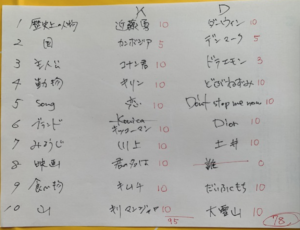 K D
1 歴史上の人物 近藤勇 10 ダーウィン 10
2 国 カンボジア 5 デンマーク 5
3 主人公 コナン君 10 ドラえもん 3
4 動物 キリン 10 どぶねずみ 10
5 song 恋 10 Don't stop me now 10
6 ブランド キッコーマン 10 Dior 10
7 みょうじ 川上 10 土井 10
8 映画 君の名は 10 誰 0
9 食べ物 キムチ 10 だいふくもち 10
10 山 キリマンジャロ 10 大雪山 10
95 78